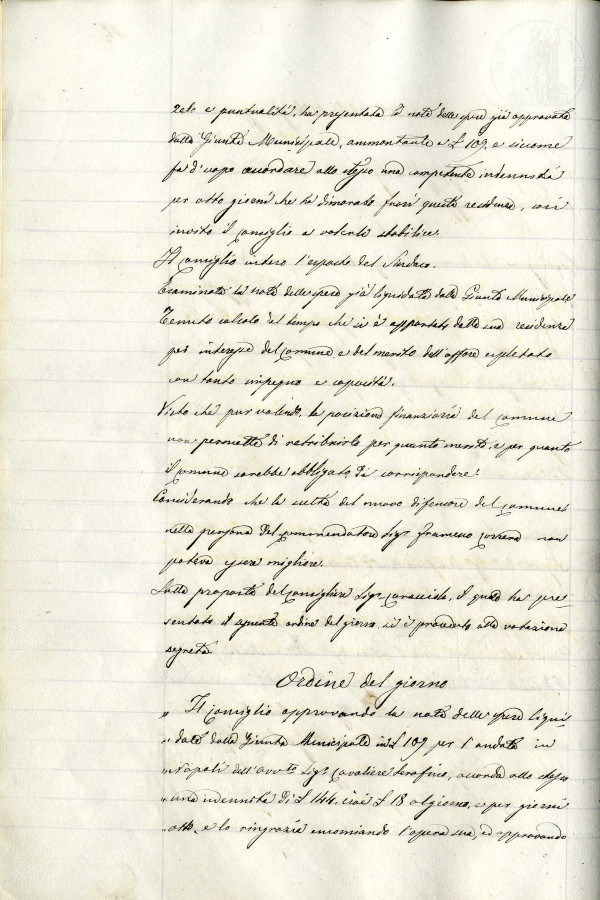 zelo e puntualità, ha presentata la nota delle spese già approvata
dalla Giunta Municipale, ammontante a £ 109, e siccome
fa d'uopo accordare allo stesso una competente indennità
per otto giorni che ha dimorato fuori questa residenza, così
invito il Consiglio a volerla stabilire.
Il Consiglio inteso l'esposto del Sindaco.
Esaminata la nota delle spese già liquidata dalla Giunta Municipale
Tenuto calcolo del tempo che si è appartato dalla sua residenza
per interesse del Comune e del merito dell'affare espletato
con tanto impegno e capacità.
Visto che pur volendo, la posizione finanziaria del Comune
non permette di retribuirlo per quanto merita, e per quanto
il Comune sarebbe obbligato di corrispondere.
Considerando che la scelta del nuovo difensore del Comune
nella persona del Commendatore Sigr Francesco Correra non
poteva essere migliore.
Sulla proposta del Consigliere Sigr Caracciolo, il quale ha pre-
sentato il seguente ordine del giorno si è proceduto alla votazione
segreta
Ordine del giorno
" Il Consiglio approvando la nota delle spese liqui-
" data dalla Giunta Municipale in £ 109 per l'andata in
" Napoli dell'avvto Sigr Cavaliere Serafino, accorda allo stesso
" una indennità di £ 144 cioè £ 18 al giorno, e per giorni
" otto, e lo ringrazia encomiando l'opera sua, ed approvando